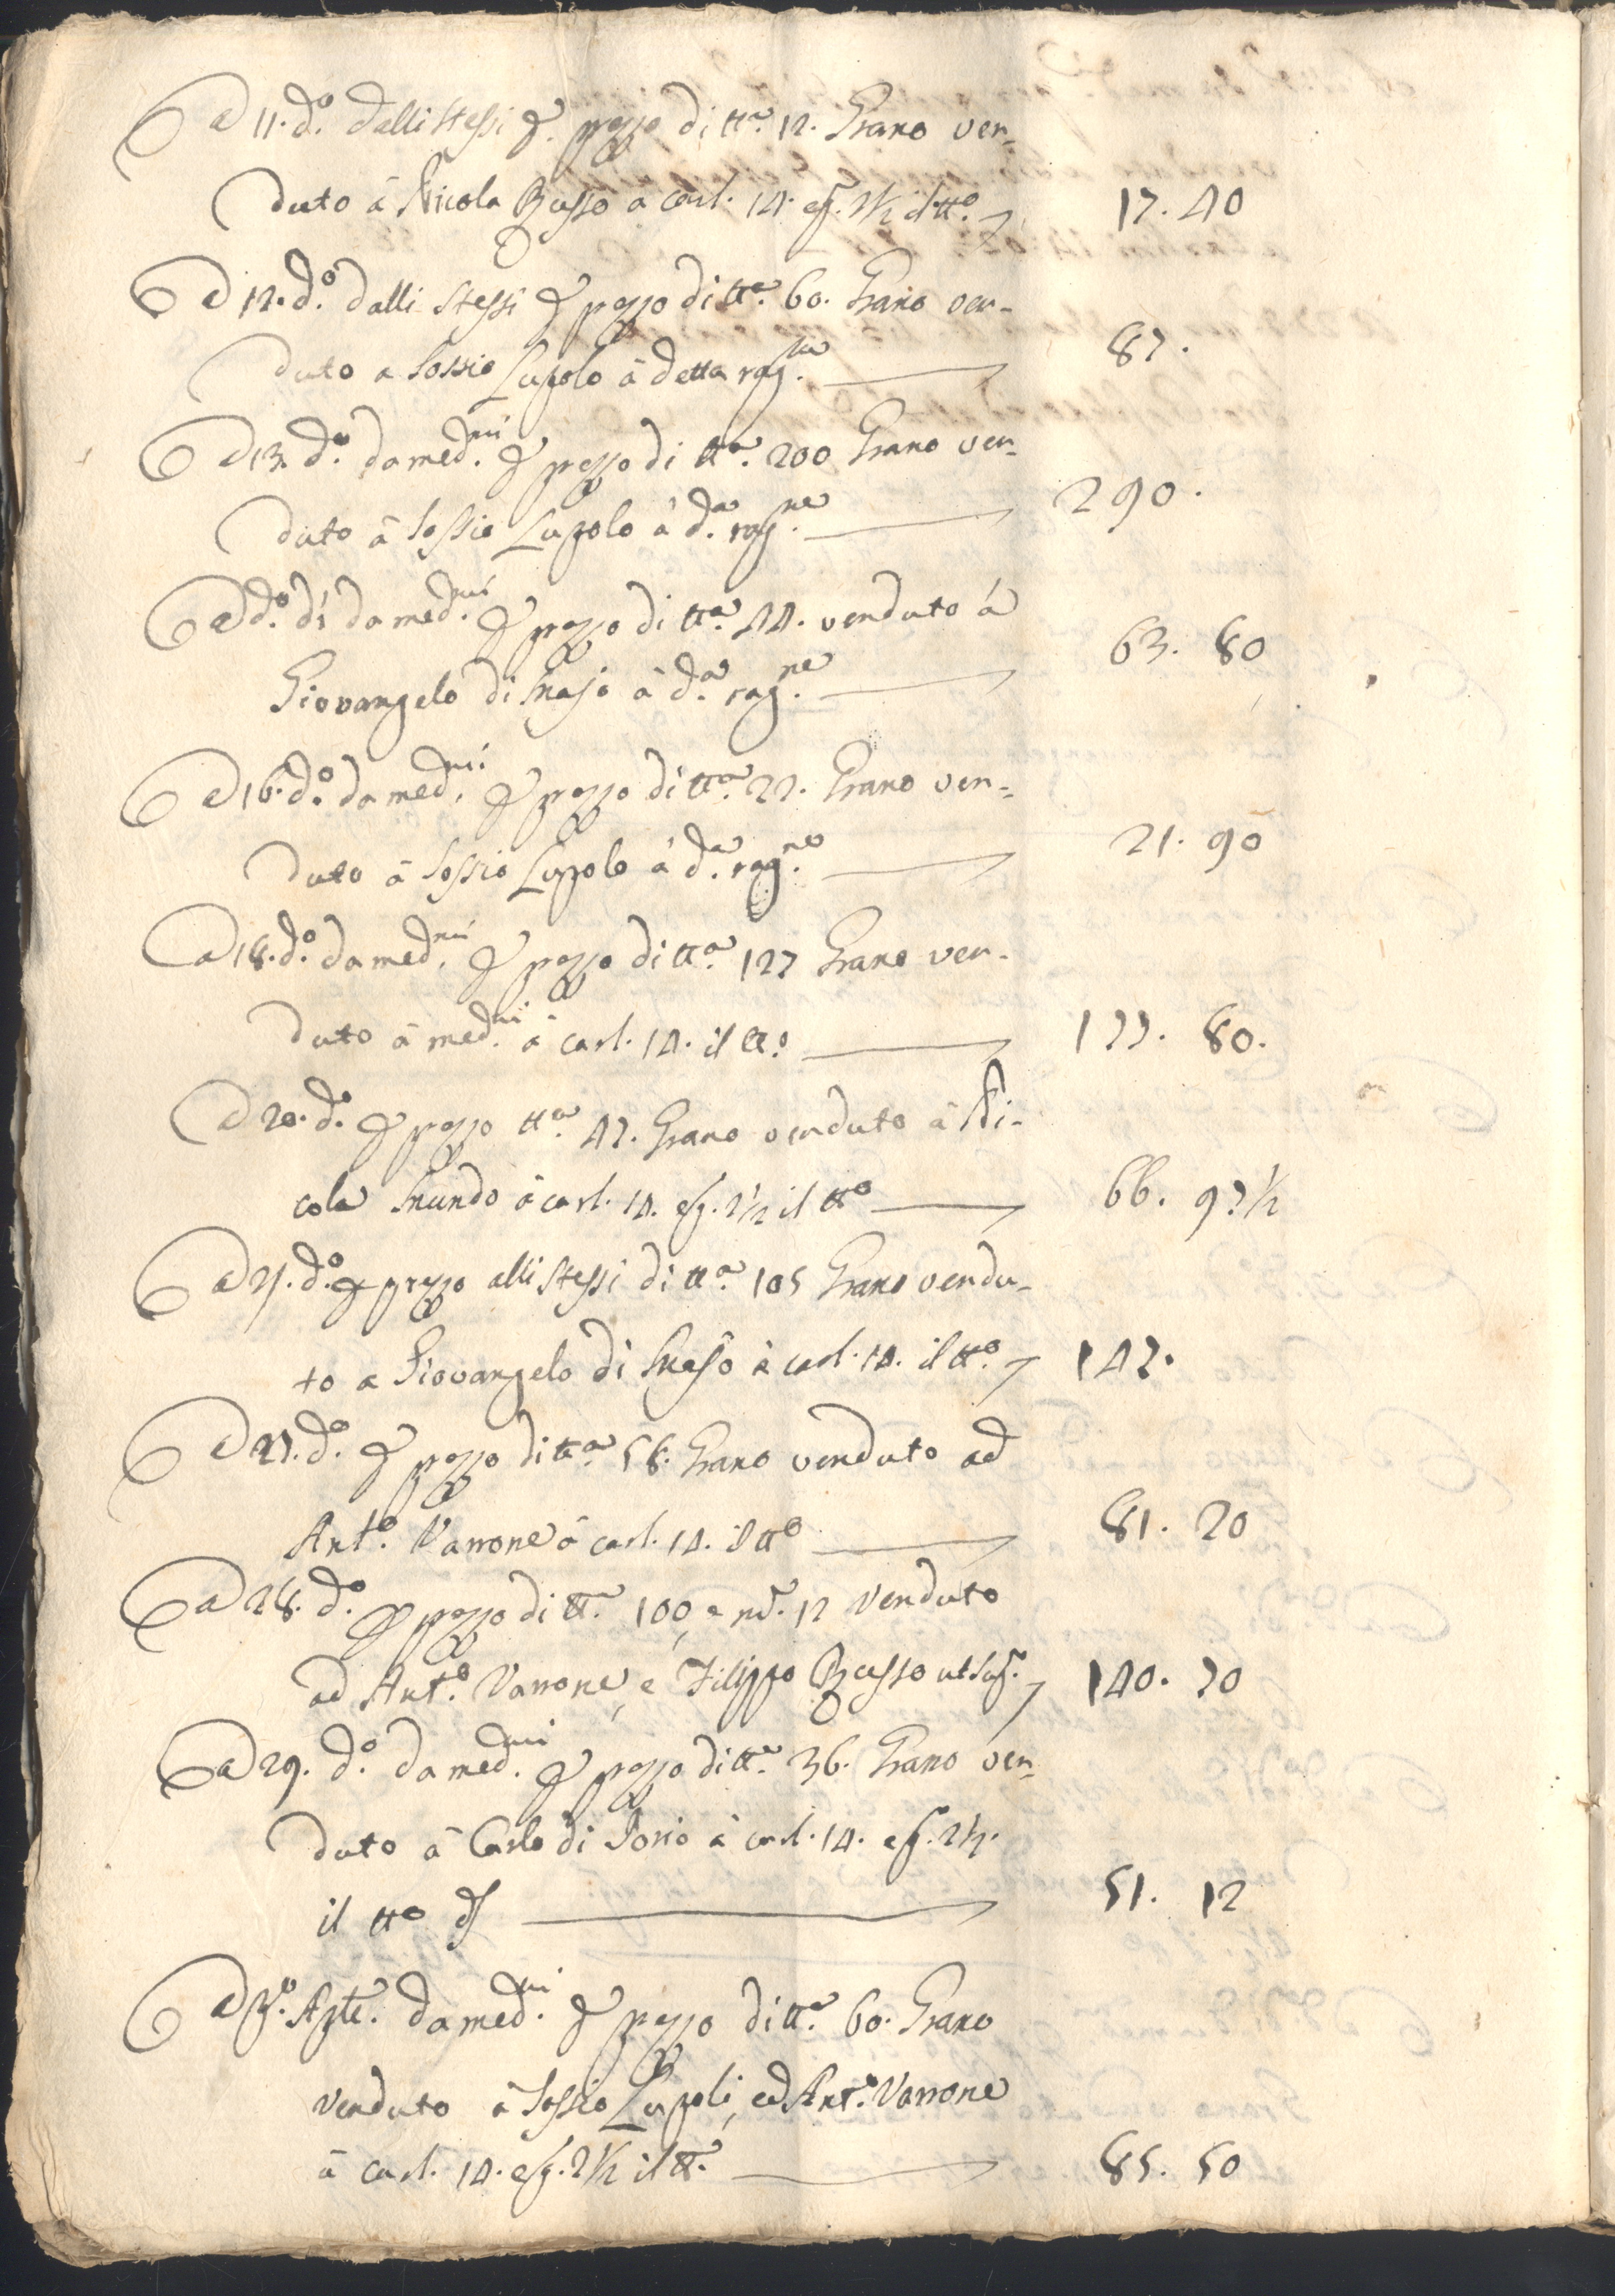 A 11. d.º dalli stessi p. prezzo di tt.ª 12. Grano ven=
duto à Nicola Russo a carl. 14. e g. 2½ il tt.º 17. 40
A 12. d.º dalli stessi p prezzo di tt.ª 60. Grano ven=
duto a Sossio Lupolo à detta rag.ne 87.
A 13. d.º da med.mi p prezzo di tt.ª 200 Grano ven=
duto à Sossio Lupolo à d.ª rag.ne 290.
A d.º dì da med.mi p prezzo di tt.ª 44. venduto à
Giovangelo di à d.ª rag.ne 63. 80
A 16. d.º da med.mi p prezzo di tt.ª 22. Grano ven=
duto à Sossio Lupolo à d.ª rag.ne 21. 90
A 18. d.º da med.mi p prezzo di tt.ª 127 Grano ven=
duto à med.mi à carl. 14. il tt.º 177. 80.
A 20. d.º p prezzo tt.ª 47. Grano venduto à Ni=
cola à carl. 14. e g. 2½ il tt.º 66. 97½
A d.º p prezzo alli stessi di tt.ª 105 Grano vendu=
to a Giovangelo di à carl. 14. il tt.º 147.
A 27. d.º p prezzo di tt.ª 58. Grano venduto ad
Ant.º Varrone à carl. 14. il tt.º 81. 20
A 28. d.º p prezzo di tt.ª 100, e m. 12 venduto
ad Ant.º Varrone, e Filippo Russo ut sup.ª 140. 70
A 29. d.º da med.mi p prezzo di tt.ª 36. Grano ven=
duto à Carlo di Iorio à carl. 14. e g. 2½.
il tt.º 51. 12
A p.º Agte. da med.mi p prezzo di tt.ª 60. Grano
venduto à Sossio Lupoli, ed Ant.º Varrone
à carl. 14. e g. 2½ il tt.º 85. 50